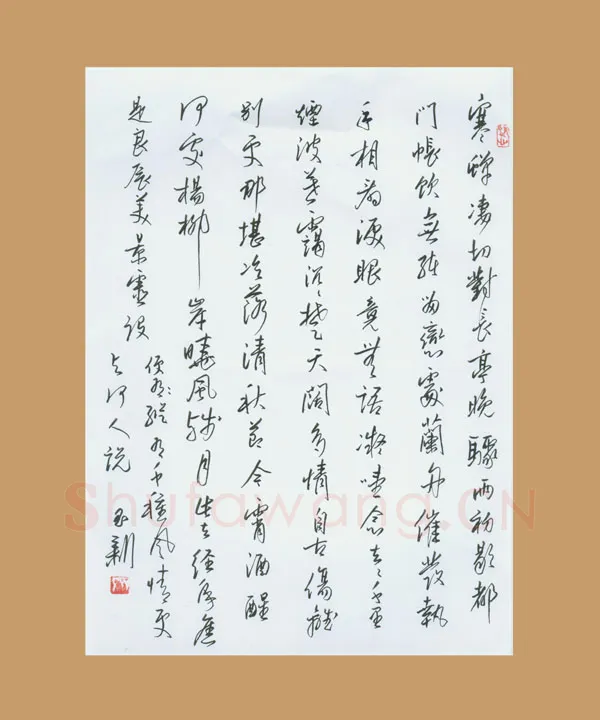 寒蟬淒切對長亭晚驟雨初歇都
門帳飲無緒留戀處蘭舟催發執
手相看淚眼竟無語凝噎念去去千里
煙波暮靄沉沉楚天闊多情自古傷離
別更那堪冷落清秋節今宵酒醒
何處楊柳岸曉風殘月此去經年應
是良辰美景虛設
便有縱有千種風情更
與何人說
Shufawang.CN